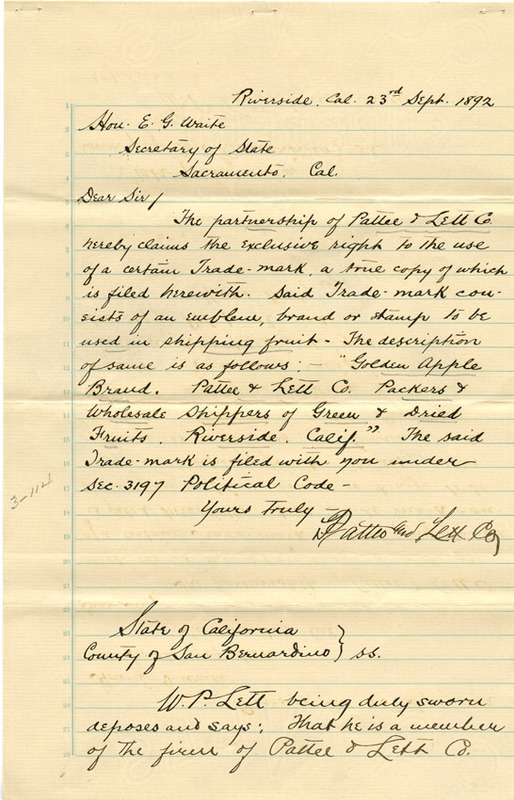 Riverside, Cal. 23rd Sept. 1892
Hon. E. G. Waite
Secretary of State
Sacramento, Cal.
Dear Sir/
The partnership of Pattee & Lett Co.
hereby claims the exclusive right to the use
of a certain Trade-mark, a true copy of which
is filed herewith. Said Trade-mark con-
sists of an emblem, brand or stamp to be
used in shipping fruit - The description
of same is as follows: - "Golden Apple
Brand. Pattee & Lett Co. Packers &
Wholesale Shippers of Green & Dried
Fruits, Riverside, Calif." The said
Trade-mark is filed with you under
Sec. 3197 Political Code -
3-114
Yours Truly -
Pattee and Lett Co
State of California
County of San Bernardino } ss.
W. P. Lett being duly sworn
deposes and says; That he is a member
of the firm of Pattee & Lett Co.